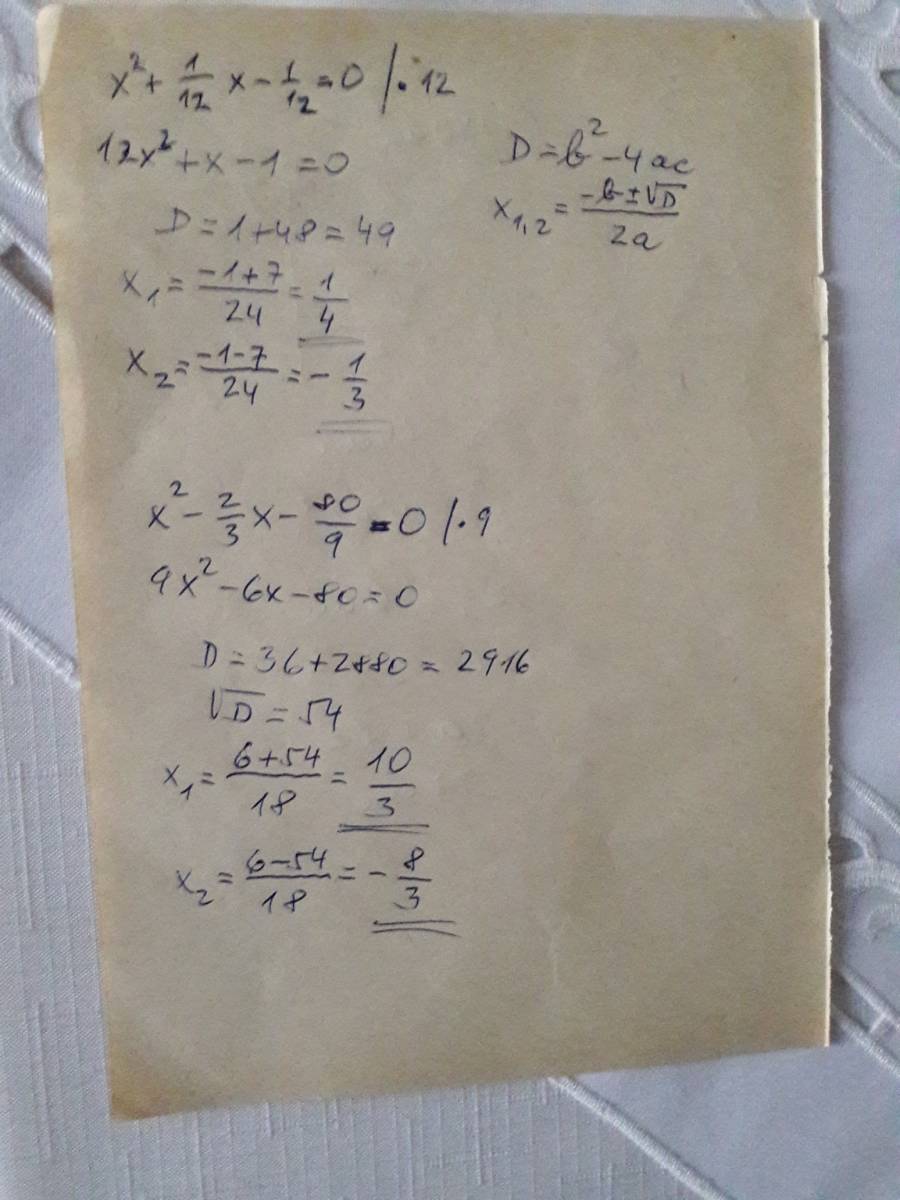 x² + 1/12 x - 1/12 = 0 /· 12
12x² + x - 1 = 0
D = b² - 4ac
x₁,₂ = (-b ± √D)/2a
D = 1 + 48 = 49
x₁ = (-1+7)/24 = 1/4
x₂ = (-1-7)/24 = - 1/3
x² - 2/3 x - 80/9 = 0 /· 9
9x² - 6x - 80 = 0
D = 36 + 2880 = 2916
√D = 54
x₁ = (6+54)/18 = 10/3
x₂ = (6-54)/18 = - 8/3